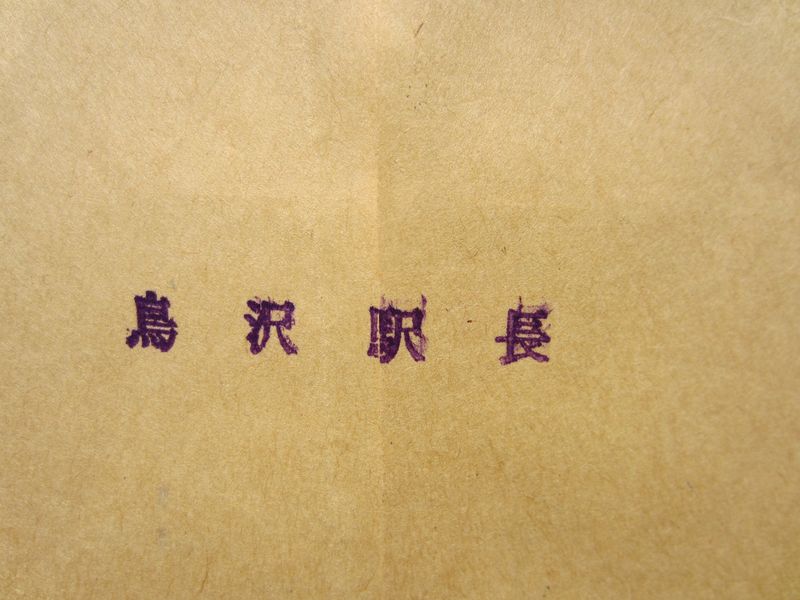 鳥沢駅長